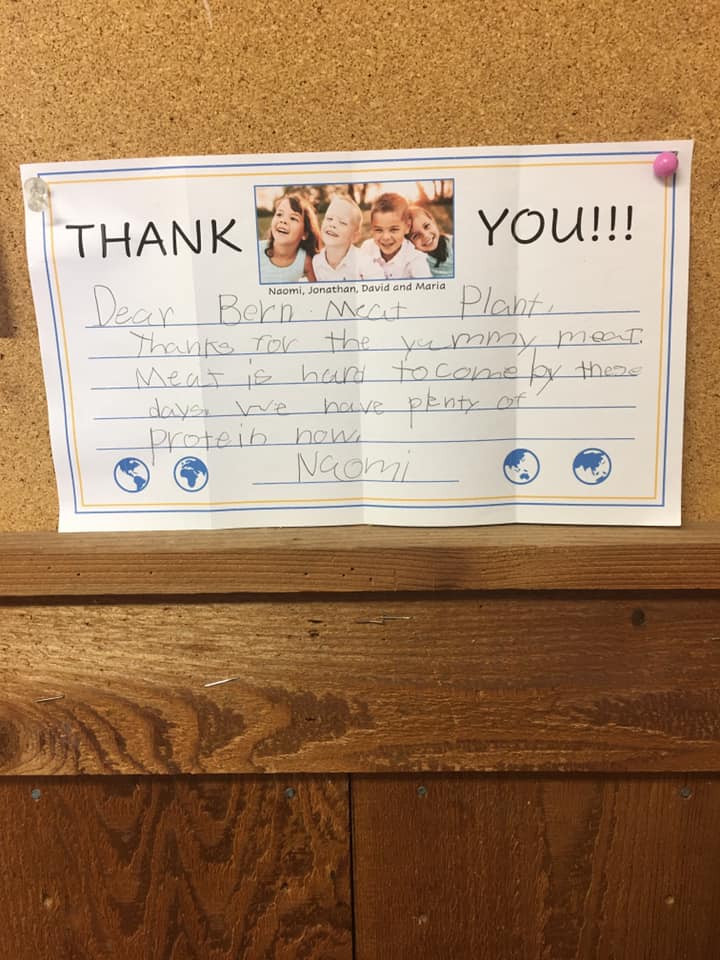 THANK YOU!!!
Naomi, Jonathan, David and Maria
Dear Bern Meat Plant,
Thanks for the yummy meat.
Meat is hard to come by these
days. We have plenty of
protein now.
Naomi